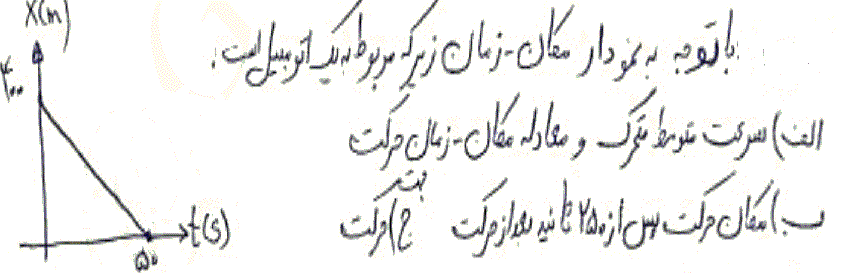 با توجه به نمودار مکان-زمان زیر که مربوط به یک اتومبیل است.
الف) سرعت متوسط متحرک و معادله مکان-زمان حرکت
ب) مکان حرکت پس از ۲۵۰ ثانیه بعد از حرکت ج) جهت حرکت
X(m)
۴۰۰
t(s)
۵۰